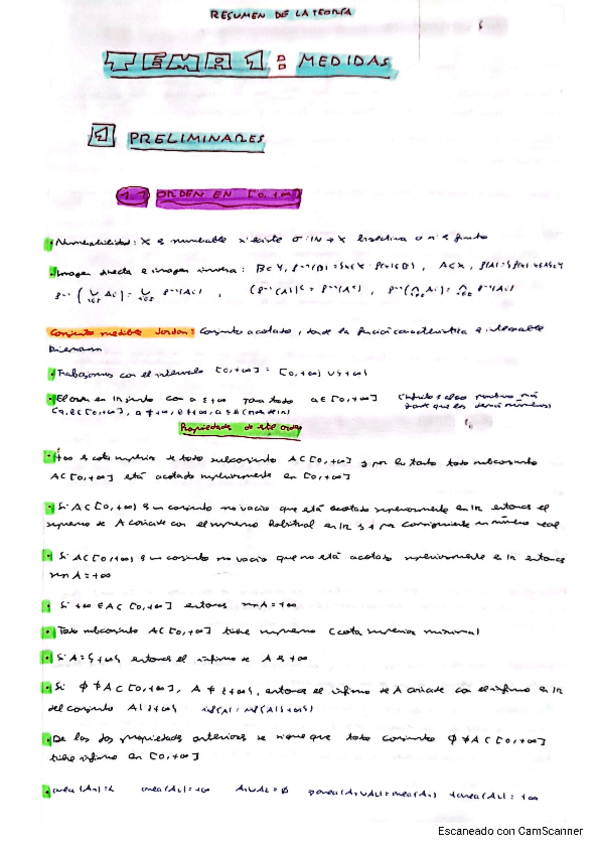 RESUMEN DE LA TEORÍA
TEMA 1: MEDIDAS
1 PRELIMINARES
1.1 ORDEN EN [0,+∞]
• Numerabilidad: X es numerable si existe σ: IN → X biyectiva o si es finito
• Imagen directa e imagen inversa: B⊂Y, A⊂X,
Conjunto medible Jordan: Conjunto acotado, donde la función característica e integrable
Riemann
• Trabajamos con el intervalo [0,+∞] = [0,+∞) ∪ {+∞}
• El orden en con a ≤ +∞ para todo a∈[0,+∞]
Propiedades de este orden
• +∞ es cota superior de todo subconjunto A⊂[0,+∞] y por lo tanto todo subconjunto
A⊂[0,+∞] está acotado superiormente en [0,+∞]
• Si A⊂[0,+∞) es un conjunto no vacío que está acotado superiormente en IR entonces el
supremo de A coincide con el supremo habitual en IR y es por consiguiente un número real
• Si A⊂[0,+∞) es un conjunto no vacío que no está acotado superiormente en IR entonces
sup A = +∞
• Si +∞ ∈ A ⊂ [0,+∞] entonces sup A = +∞
• Todo subconjunto A⊂[0,+∞] tiene supremo (cota superior minimal)
• Si A = {+∞} entonces el ínfimo de A es +∞
• Si ϕ ≠ A ⊂ [0,+∞], A ≠ {+∞}, entonces el ínfimo de A coincide con el ínfimo en IR
del conjunto A\{+∞} inf(A) = inf(A\{+∞})
• De las dos propiedades anteriores se sigue que todo conjunto ϕ ≠ A ⊂ [0,+∞]
tiene ínfimo en [0,+∞]
Escaneado con CamScanner